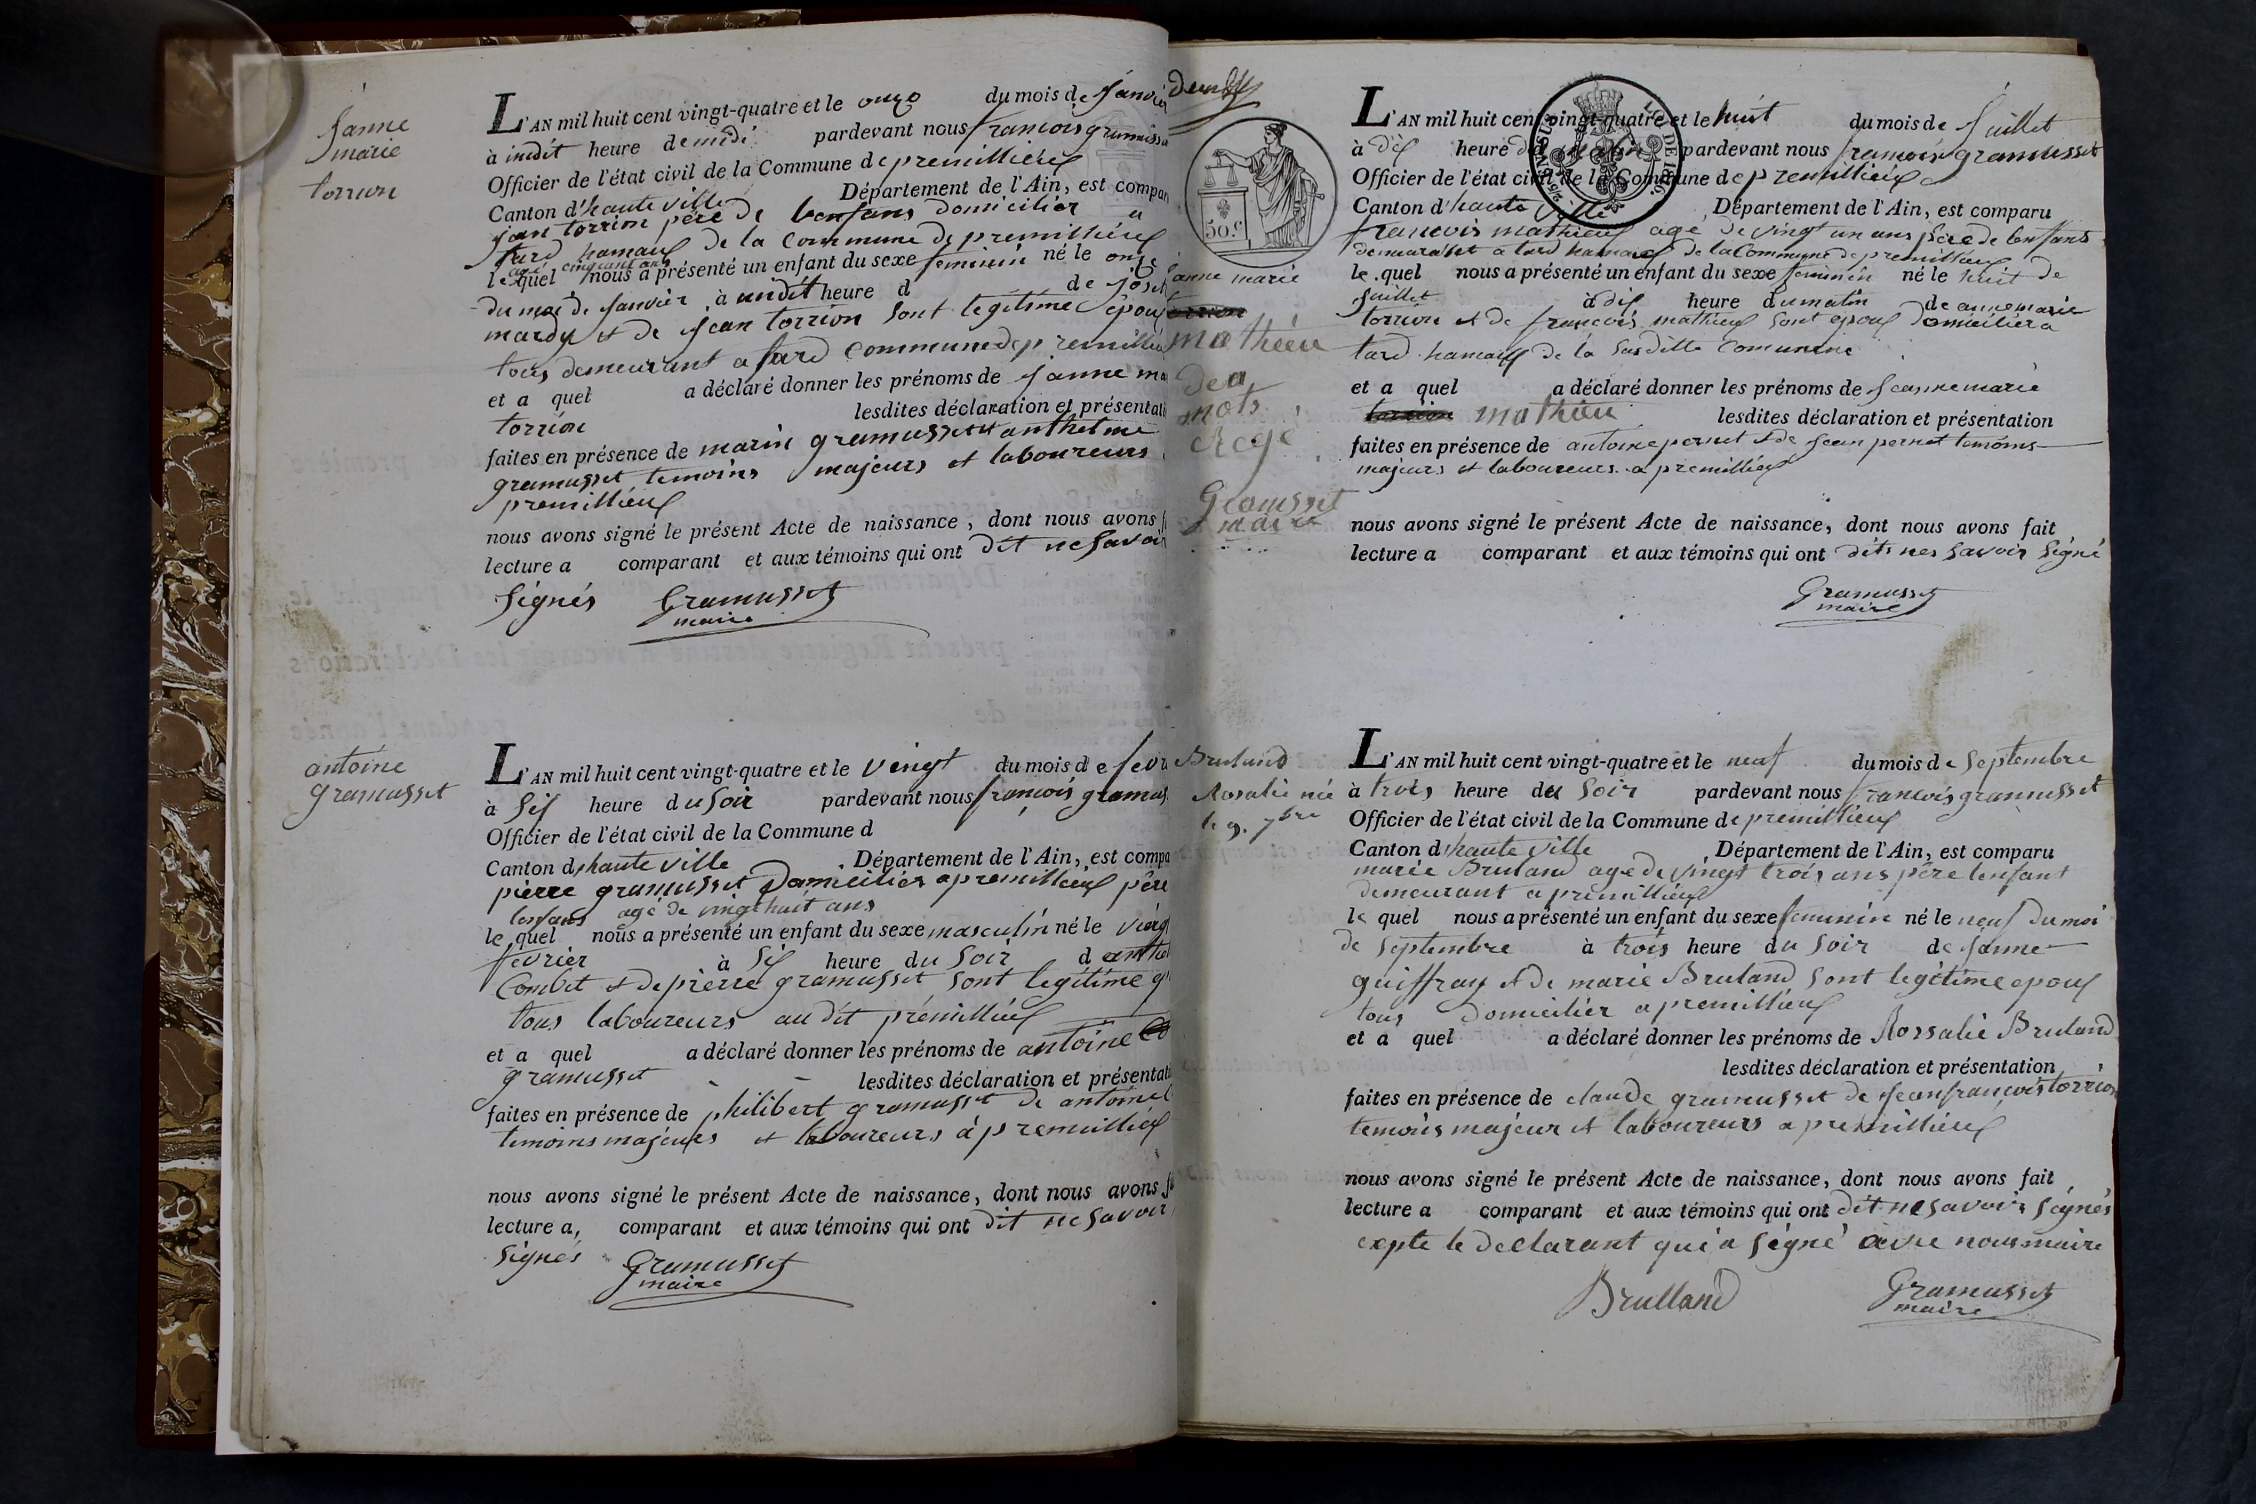 janne
marie
torrion
L'AN mil huit cent vingt-quatre et le onze du mois de janvier
à indit heure demidi pardevant nous francois gramusse
Officier de l'état civil de la Commune de premillieux
Canton d'haute ville Département de l'Ain, est compar
jean torrion père de lenfans domicilier a
tard hamaux de la Commune de premillieux
agé cinquant ans
lequel nous a présenté un enfant du sexe feminin né le onze
du moi de janvier à undit heure d de josep
mardy et de jean torrion sont legitime epou
tous demeurant a tard commune de premillieu
et a quel a déclaré donner les prénoms de janne ma
torrion lesdites déclaration et présentati
faites en présence de marin gramusset et anthelme
gramusset temoins majeurs et laboureurs
premillieux
nous avons signé le présent Acte de naissance, dont nous avons f
lecture a comparant et aux témoins qui ont dit ne savoir
signés Gramusset
maire
antoine
gramusset
L'AN mil huit cent vingt-quatre et le vingt du mois de fevr
à six heure du soir pardevant nous françois gramus
Officier de l'état civil de la Commune d
Canton d'haute ville Département de l'Ain, est compa
pierre gramusset Domicilier a premillieux père
lenfans agé de vingt huit ans
le quel nous a présenté un enfant du sexe masculin né le ving
fevrier à six heure du soir d anthe
Combet et de pierre gramusset sont legitime
tous laboureurs au dit prémillieux
et a quel a déclaré donner les prénoms de antoine
gramusset lesdites déclaration et présentat
faites en présence de philibert gramusset de antoine
temoins majeurs et laboureurs à premillieux
nous avons signé le présent Acte de naissance, dont nous avons f
lecture a, comparant et aux témoins qui ont dit ne savoir
signés Gramusset
maire
50.C
janne marie
torrion
mathieu
mots
Gramusset
maire
L'AN mil huit cent vingt-quatre et le huit du mois de juillet
à dix heure du matin pardevant nous francois gramusset
Officier de l'état civil de la Commune de premillieux
Canton d'haute ville Département de l'Ain, est comparu
francois mathieux agé de vingt un ans père de lenfans
demeurant a tard hamaux de la Commune de premillieux
le quel nous a présenté un enfant du sexe feminin né le huit de
juillet à dix heure du matin de anne marie
torrion et de françois mathieux sont epoux domicilier a
tard hamaux de la susditte Comunne
et a quel a déclaré donner les prénoms de jeanne marie
torrion mathieu lesdites déclaration et présentation
faites en présence de antoine pernet et de jean pernet temoins
majeurs et laboureurs a premillieux
nous avons signé le présent Acte de naissance, dont nous avons fait
lecture a comparant et aux témoins qui ont dits nes savoir signé
Gramusset
maire
Bruland
Rosalie née
le 9. 7bre
L'AN mil huit cent vingt-quatre et le neuf du mois de septembre
à trois heure du soir pardevant nous francois gramusset
Officier de l'état civil de la Commune de premillieux
Canton d'haute ville Département de l'Ain, est comparu
marie Bruland age de vingt trois ans père lenfant
demeurant a premillieux
le quel nous a présenté un enfant du sexe feminin né le neuf du moi
de septembre à trois heure du soir de janne
guiffray et de marie Bruland sont legitime epoux
tous domicilier a premillieux
et a quel a déclaré donner les prénoms de Rossalie Bruland
lesdites déclaration et présentation
faites en présence de claude gramusset de jean françois torrion
temoins majeur et laboureurs a premillieux
nous avons signé le présent Acte de naissance, dont nous avons fait
lecture a comparant et aux témoins qui ont dit ne savoir signés
expte le declarant qui a signé avec nous maire
Brulland Gramusset
maire